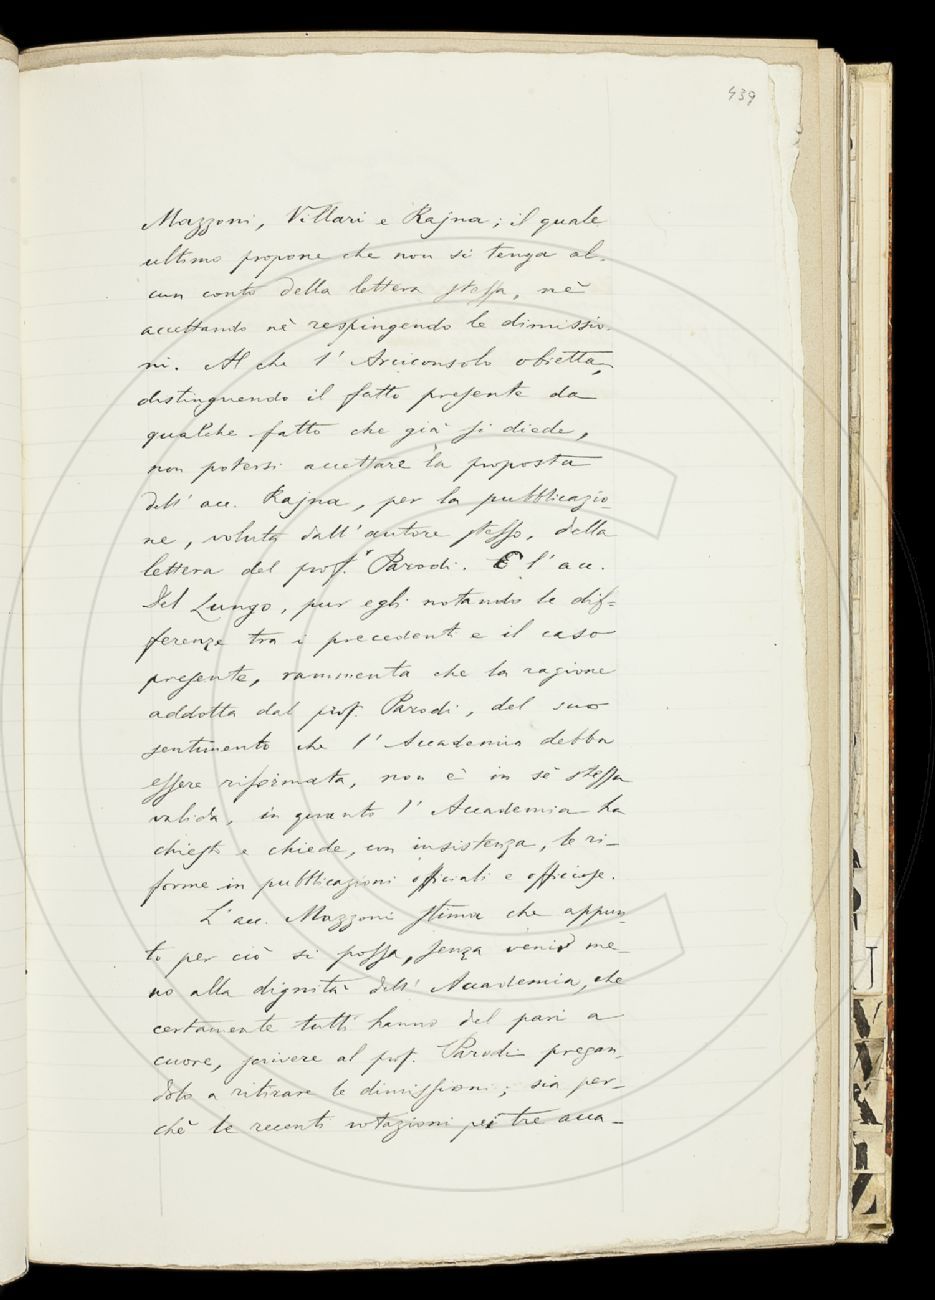 439
Mazzoni, Villari e Rajna; il quale
ultimo propone che non si tenga al-
cun conto della lettera stessa, nè
accettando nè respingendo le dimissio-
ni. Al che l'Arciconsolo obietta,
distinguendo il fatto presente da
qualche fatto che già si diede,
non potersi accettare la proposta
dell'acc. Rajna, per la pubblicazio-
ne, voluta dall'autore stesso, della
lettera del prof. Parodi. E l'acc.
Del Lungo, pur egli notando le dif-
ferenze tra i precedenti e il caso
presente, rammenta che la ragione
addotta dal prof. Parodi, del suo
sentimento che l'Accademia debba
essere riformata, non è in sè stessa
valida, in quanto l'Accademia ha
chiesto e chiede, con insistenza, le ri-
forme in pubblicazioni officiali e officiose.
L'acc. Mazzoni stima che appun-
to per ciò si possa, senza venir me-
no alla dignità dell'Accademia, che
certamente tutti hanno del pari a
cuore, scrivere al prof. Parodi pregan-
dolo a ritirare le dimissioni; sia per-
chè le recenti votazioni pei tre acca-